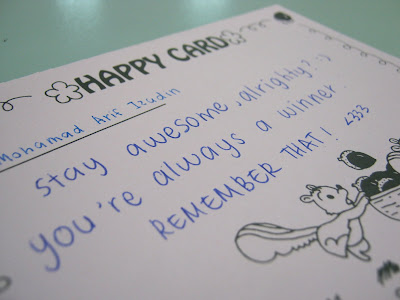 HAPPY CARD
Mohamad Arif Izudin
stay awesome, alrighty? :)
you're always a winner.
REMEMBER THAT! <333